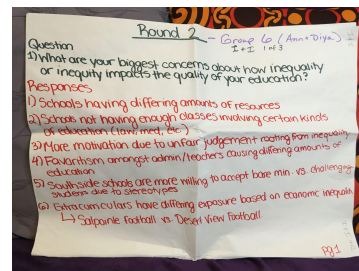 Round 2 - Group 6 (Ann+Diya)
I+I 1 of 3
Question
1) What are your biggest concerns about how inequality
or inequity impacts the quality of your education?
Responses
1) Schools having differing amounts of resources
2) Schools not having enough classes involving certain kinds
of education (law, med, etc)
3) More motivation due to unfair judgement rooting from inequality
4) Favoritism amongst admin/teachers causing differing amounts of
education
5) Southside schools are more willing to accept bare min. vs. challenging
students due to stereotypes
6) Extracurriculars have differing exposure based on economic inequality
↳ Salpointe Football vs. Desert View Football
pg 1